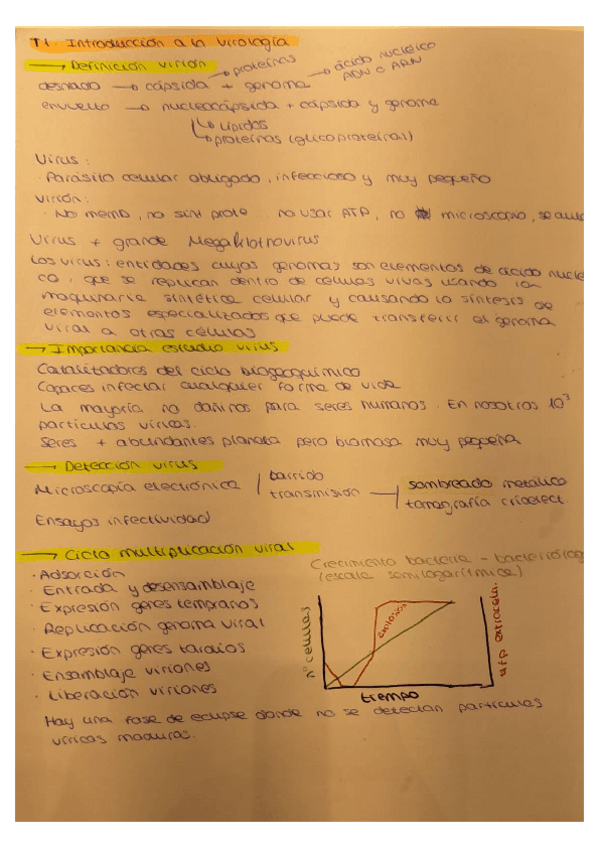 T1. Introducción a la virología
→ Definición virión
→ proteínas → ácido nucleico
ADN o ARN
desnudo → cápsida + genoma
envuelto → nucleocápsida + cápsida y genoma
↳ Lípidos
↳ proteínas (glicoproteínas)
Virus:
· Parásito celular obligado, infeccioso y muy pequeño
Virión:
· No memb, no sint prote... no usar ATP, no microscopio,
Virus + grande
Los virus: entidades cuyos genomas son elementos de ácido nuclei
co, que se replican dentro de células vivas usando la
maquinaria sintética celular y causando la síntesis de
elementos especializados que puede transferir el genoma
viral a otras células
→ Importancia estudio virus
Catalizadores del ciclo biogeoquímico
Capaces infectar cualquier forma de vida
La mayoría no dañinos para seres humanos. En nosotros 10³
partículas víricas.
Seres + abundantes planeta pero biomasa muy pequeña
→ Detección virus
Microscopía electrónica | barrido
transmisión —| sombreado metálico
tomografía crioelect.
Ensayos infectividad
→ Ciclo multiplicación viral
· Adsorción
· Entrada y desensamblaje
· Expresión genes tempranos
· Replicación genoma viral
· Expresión genes tardíos
· Ensamblaje viriones
· Liberación viriones
Crecimiento bacteria - bacteriólog
(escala semilogarítmica)
nº células
explosión
ufp extracelu.
tiempo
Hay una fase de eclipse donde no se detectan partículas
víricas maduras.